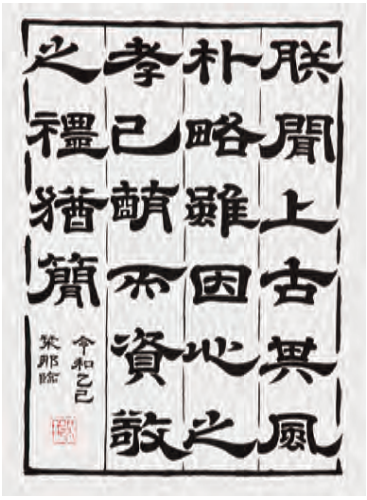 朕聞上古其風
朴略雖因心之
孝已萌而資敬
之禮猶簡
令和乙巳
那臨